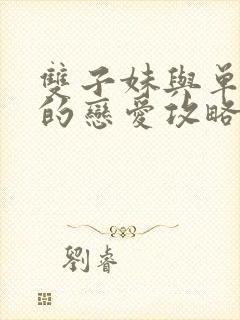 雙子妹與單
的戀愛攻略
劉睿